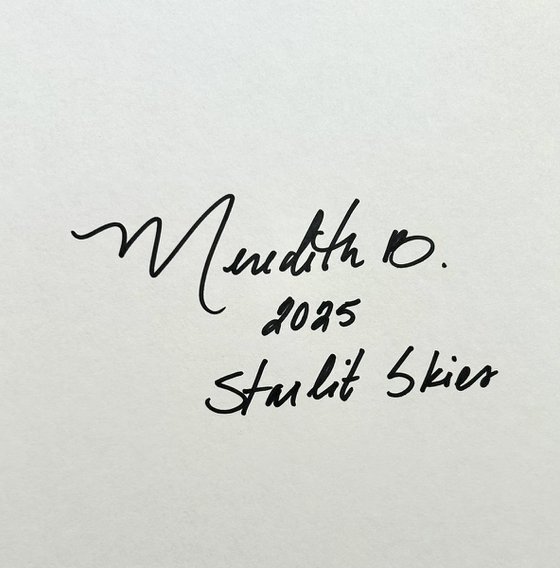 Meredith B.
2025
Starlit Skies